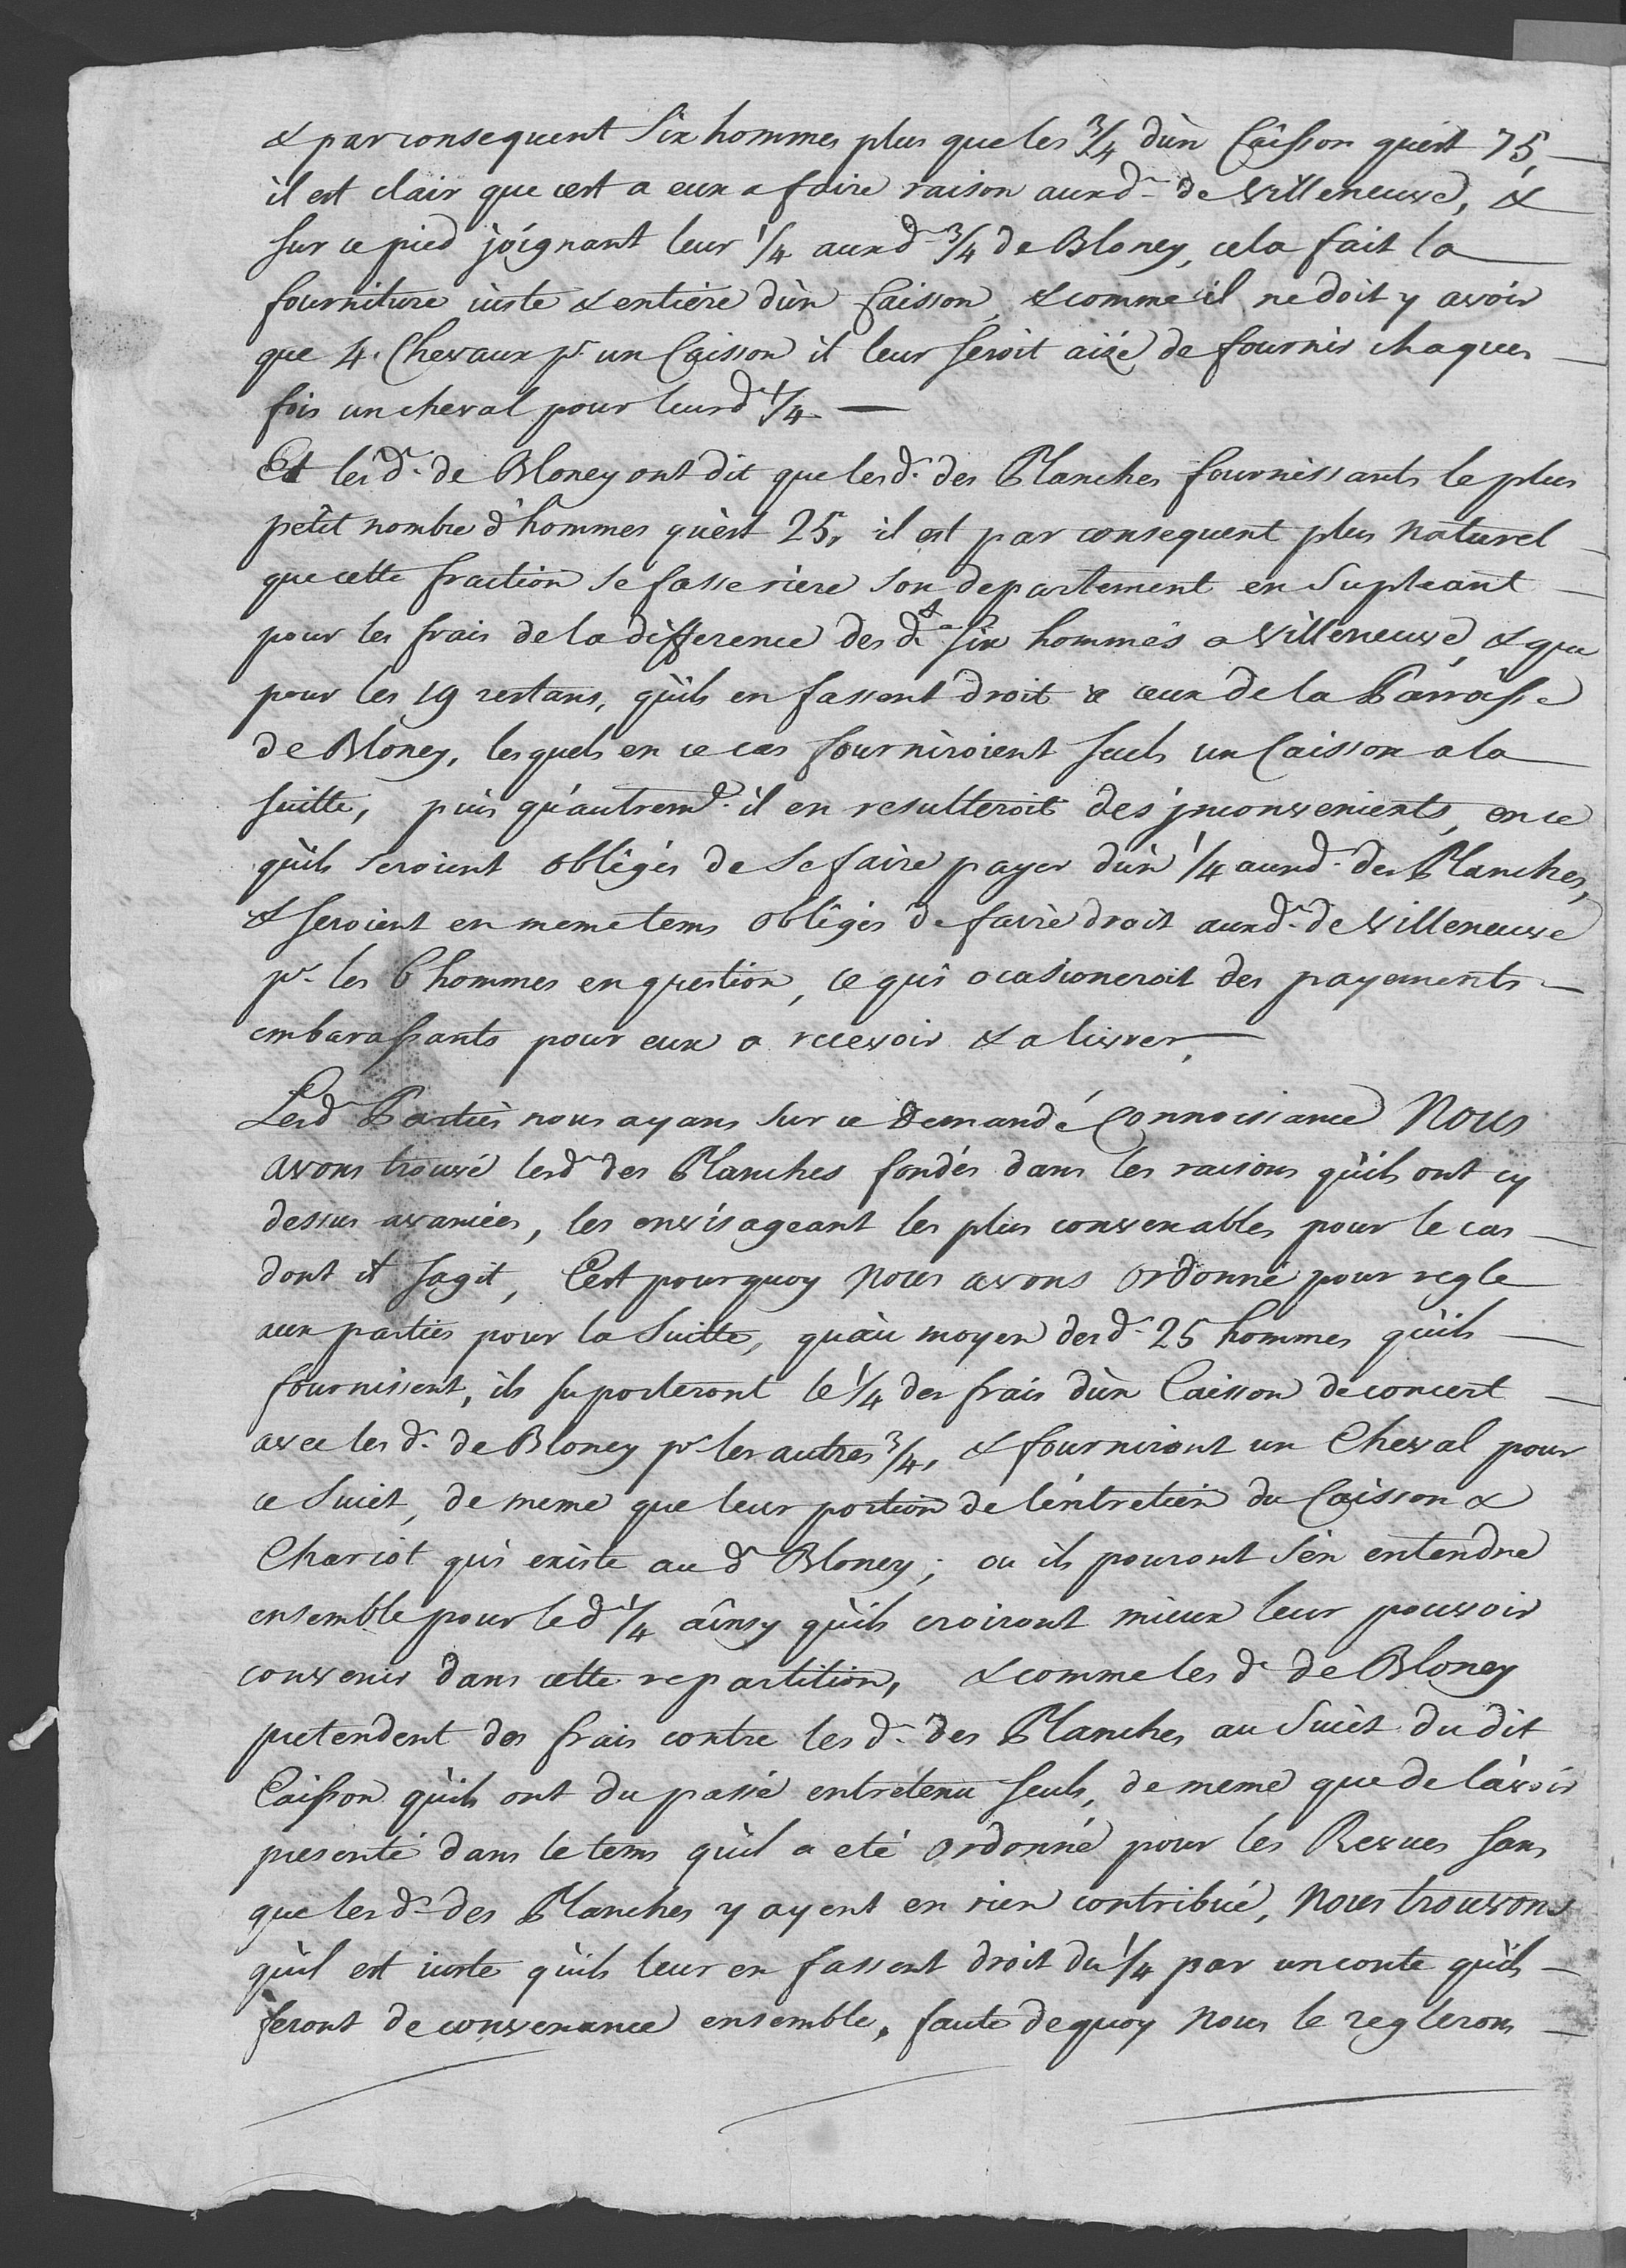 & par consequent Six hommes plus que les 3/4 d'ùn Caisson qu'est 75,
il est clair que cest a eux a faire raison auxd. de Villeneuve, &
sur ce pied joignant leur 1/4 auxd. 3/4 de Bloney, cela fait la
fourniture iuste & entière d'ùn Caisson, & comme il ne doit y avoir
que 4. Chevaux pr. un Caisson il leur seroit aizé de fournir chaques
fois un cheval pour leurd. 1/4 —
Et lesd. de Bloney ont dit que lesd. des Planches fournissants le plus
petit nombre d'hommes qu'est 25, il est par consequent plus naturel
que cette fraction se fasse riere son departement en Supleant
pour les frais de la difference des dts. six hommes a Villeneuve, & que
pour les 19 restans, qu'ils en fassent droit a ceux de la Parroisse
de Bloney, lesquels en ce cas fourniroient seuls un Caisson a la
suitte, puis qu'autremt. il en resulteroit des jnconvenients, en ce
qu'ils seroient obligés de se faire payer d'ùn 1/4 auxd. des Planches,
& seroient en meme tems obligés de faire droit auxd. de Villeneuve
pr. les 6 hommes en question, ce qui ocasioneroit des payements
embarassants pour eux a recevoir & a livrer,
Lesd. Parties nous ayans sur ce Demandé Connoissance Nous
avons trouvé lesd. des Planches fondés dans les raisons qu'ils ont cy
dessus avancées, les envisageant les plus convenables pour le cas
dont il sagit, C'est pourquoy Nous avons Ordonné pour regle
aux parties pour la Suitte, qu'au moyen desd. 25 hommes qu'ils
fournissent, ils suporteront le 1/4 des frais d'ùn Caisson de concert
avec lesd. de Bloney pr. les autres 3/4, & fourniront un Cheval pour
ce Suiet, de meme que leur portion de lentretien du Caisson &
Chariot qui existe aud. Bloney; ou ils pouront s'en entendre
ensemble pour led. 1/4 aînsy qu'ils croiront mieux leur pouvoir
convenir dans cette repartition, & comme lesd. de Bloney
pretendent des frais contre lesd. des Planches au Suiet du dit
Caisson qu'ils ont du passé entretenu seuls, de meme que de l'avoir
presenté dans le tems qu'il a eté Ordonné pour les Revues sans
que lesd. des Planches y ayent en rien contribué, Nous trouvons
qu'il est iuste qu'ils leur en fassent droit du 1/4 par un conte qu'ils
feront de convenance ensemble, faute dequoy Nous le reglerons